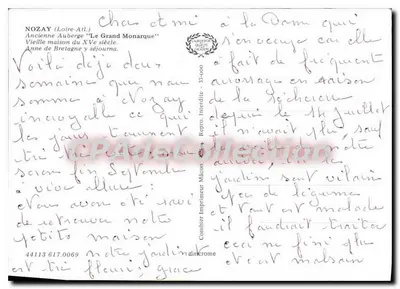 NOZAY (Loire-Atl.)
Ancienne Auberge "Le Grand Monarque"
Vieille maison du XVe siècle.
Anne de Bretagne y séjourna.
Voilà déjà deux
semaine que nous
somme à Nozay
incroyable ce que
les jours tournent
fin Septembre
a vive allure
nous avons été ravi
de retrouver notre
petits maison
notre jardinet
est très fleuri, grace
à la Dame qui
s'en occupe car elle
a fait de fréquent
arrosage en raison
de la sécheresse
depuis le 14 juillet
il n'avait plus sauf
jardin sont vilain
peu de légumes
et tout est malade
il faudrait traiter
ceci ne fini plus
et c'est malsain
44113 617.0069
CPAdeCollection